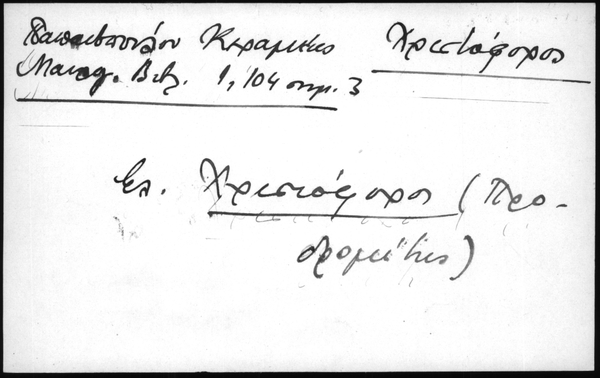 Παπαδοπούλου Κεραμέως Χριστόφορος
Μαυρ. Βιβλ. 1, 104 σημ. 3
βλ. Χριστόφορος (Προ-
δρομίτης)